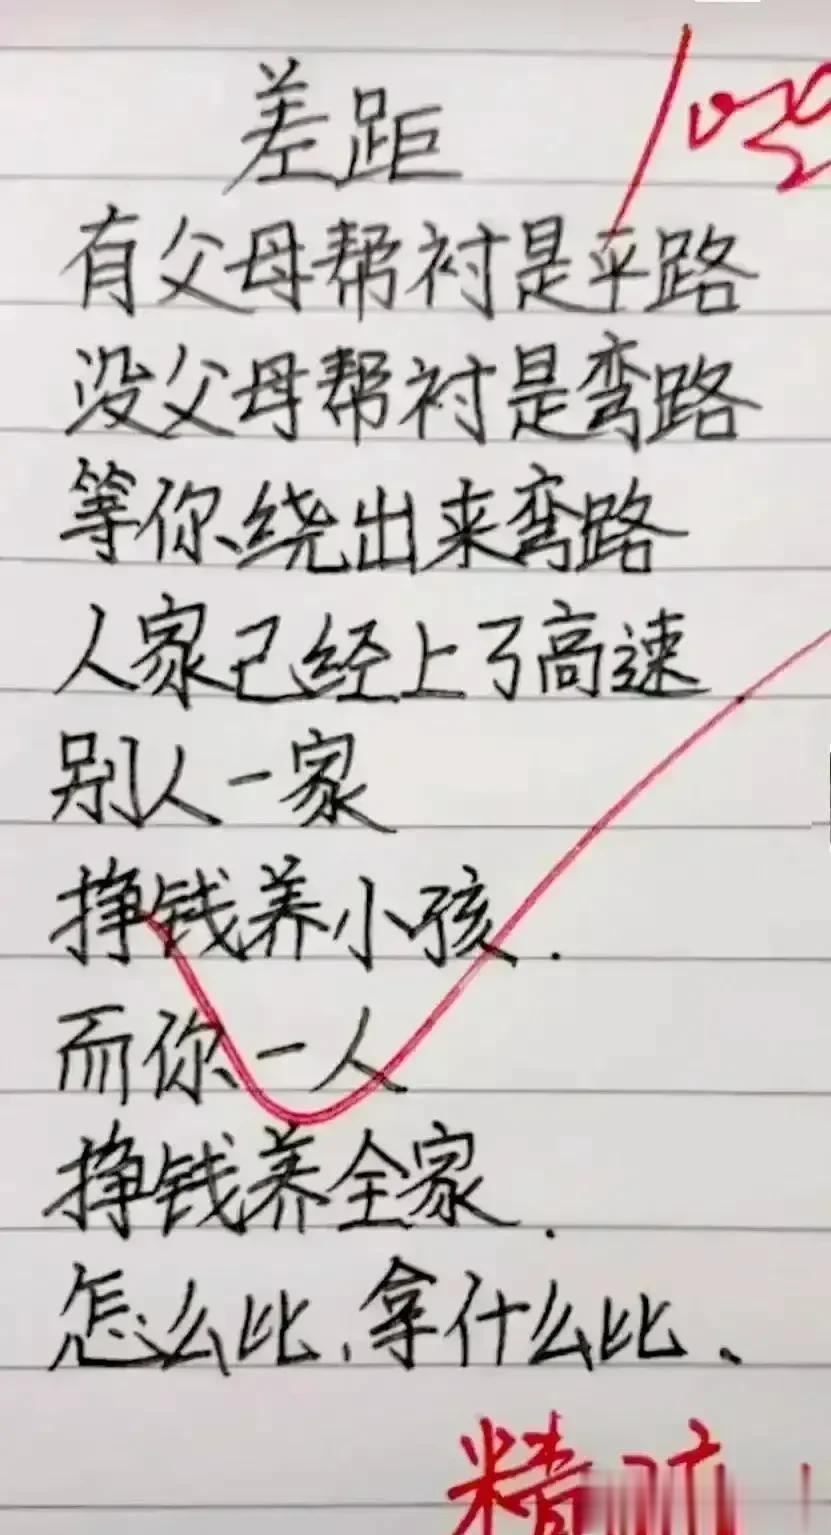 差距
有父母帮衬是平路
没父母帮衬是弯路
等你绕出来弯路
人家已经上了高速
别人一家
挣钱养小孩.
而你一人
挣钱养全家.
怎么比,拿什么比.
精